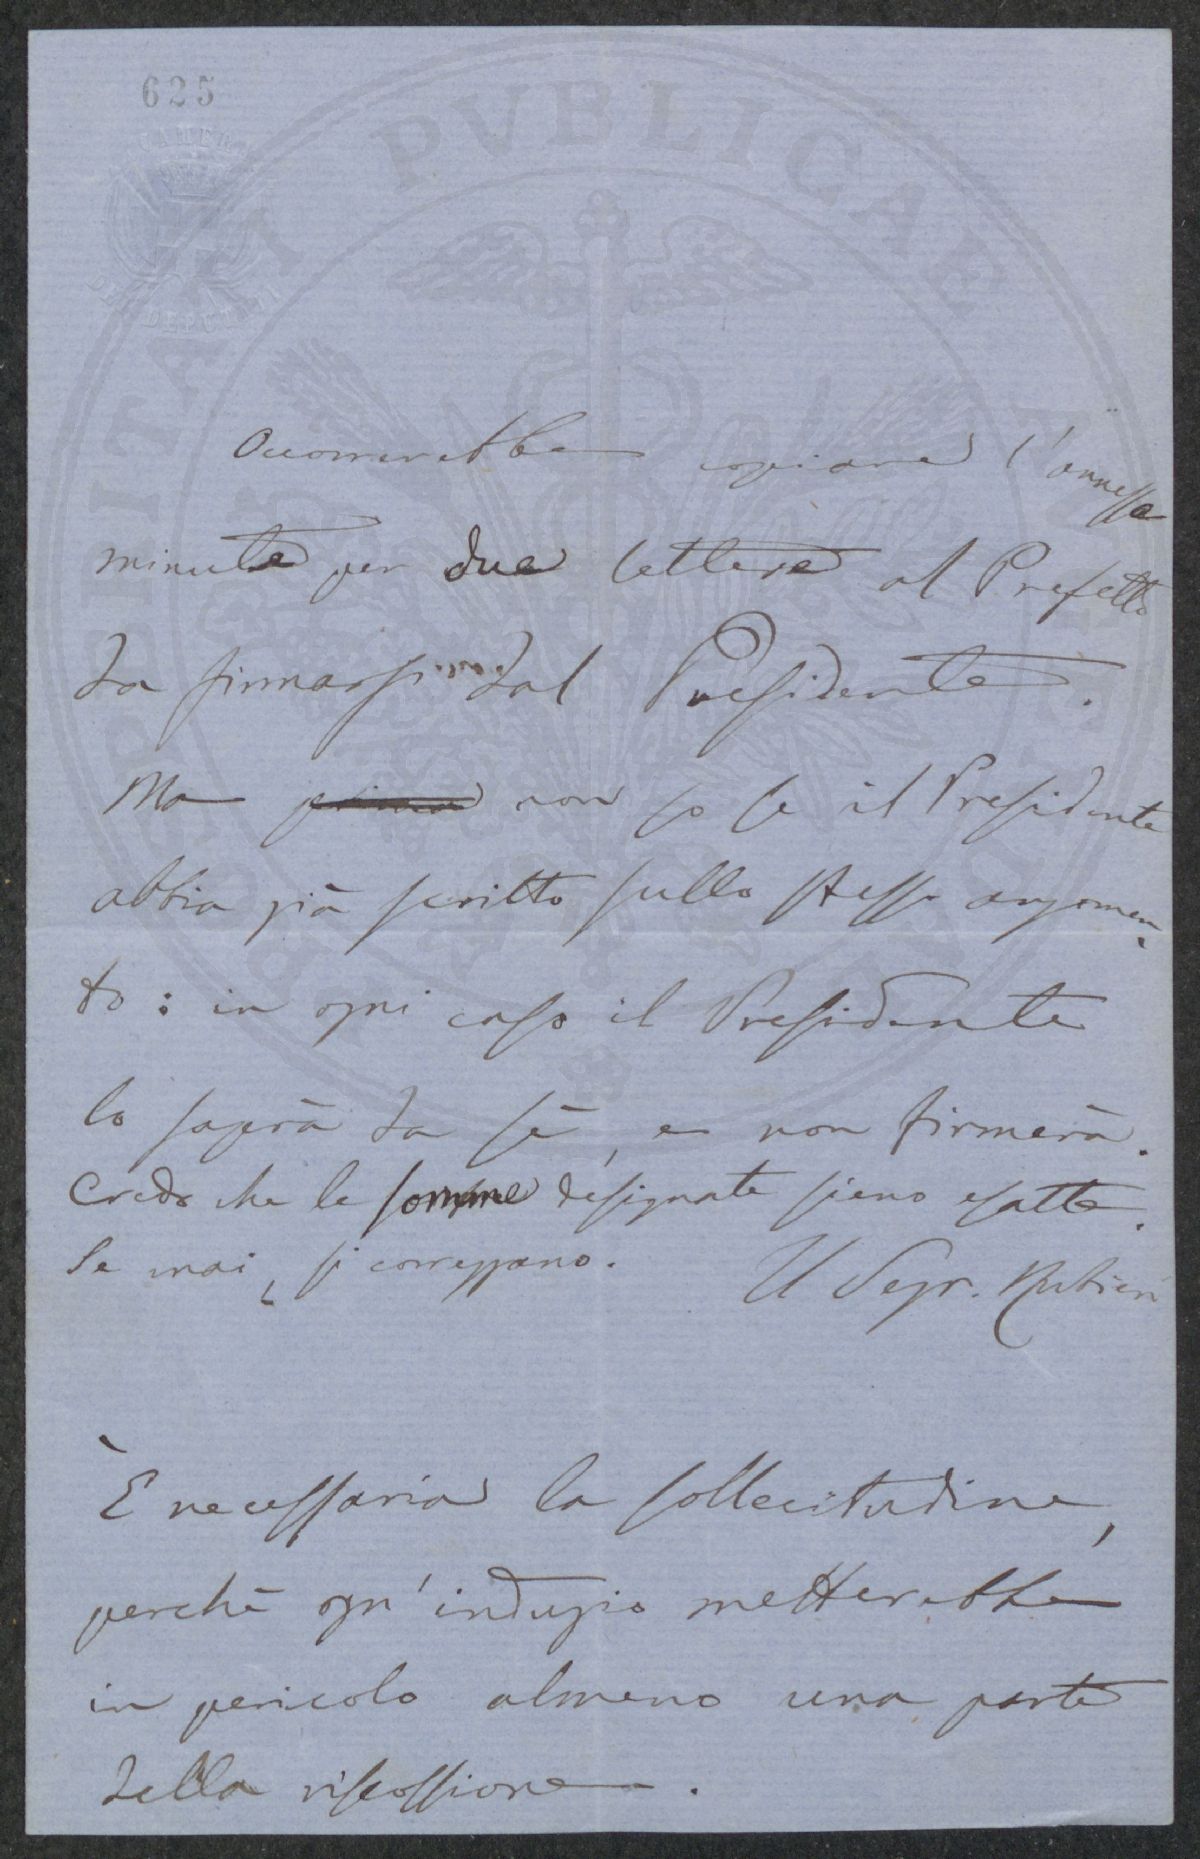 625
CAMERA
DEI DEPUTATI
PROSPERITATI PVBLICAE AVGENDAE
Occorrerebbe copiare l'annessa
minuta per due lettere al Prefetto
da firmarsi dal Presidente.
Ma prima non so se il Presidente
abbia già scritto sullo stesso argomen-
to: in ogni caso il Presidente
lo saprà da sè, e non firmerà.
Credo che le somme designate sieno esatte.
Se mai, si correggano.
Il Segr. Rubieri
È necessaria la sollecitudine,
perchè ogn'indugio metterebbe
in pericolo almeno una parte
della riscossione.